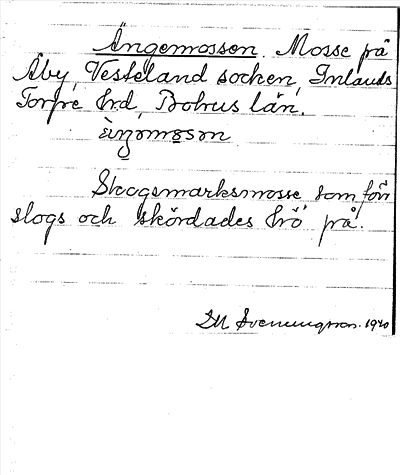 Ängemossen. Mosse på
Åby, Vesteland socken, Inlands
Torpe hrd, Bohus län.
Skogsmarksmosse som förr
slogs och skördades hö på.
1940